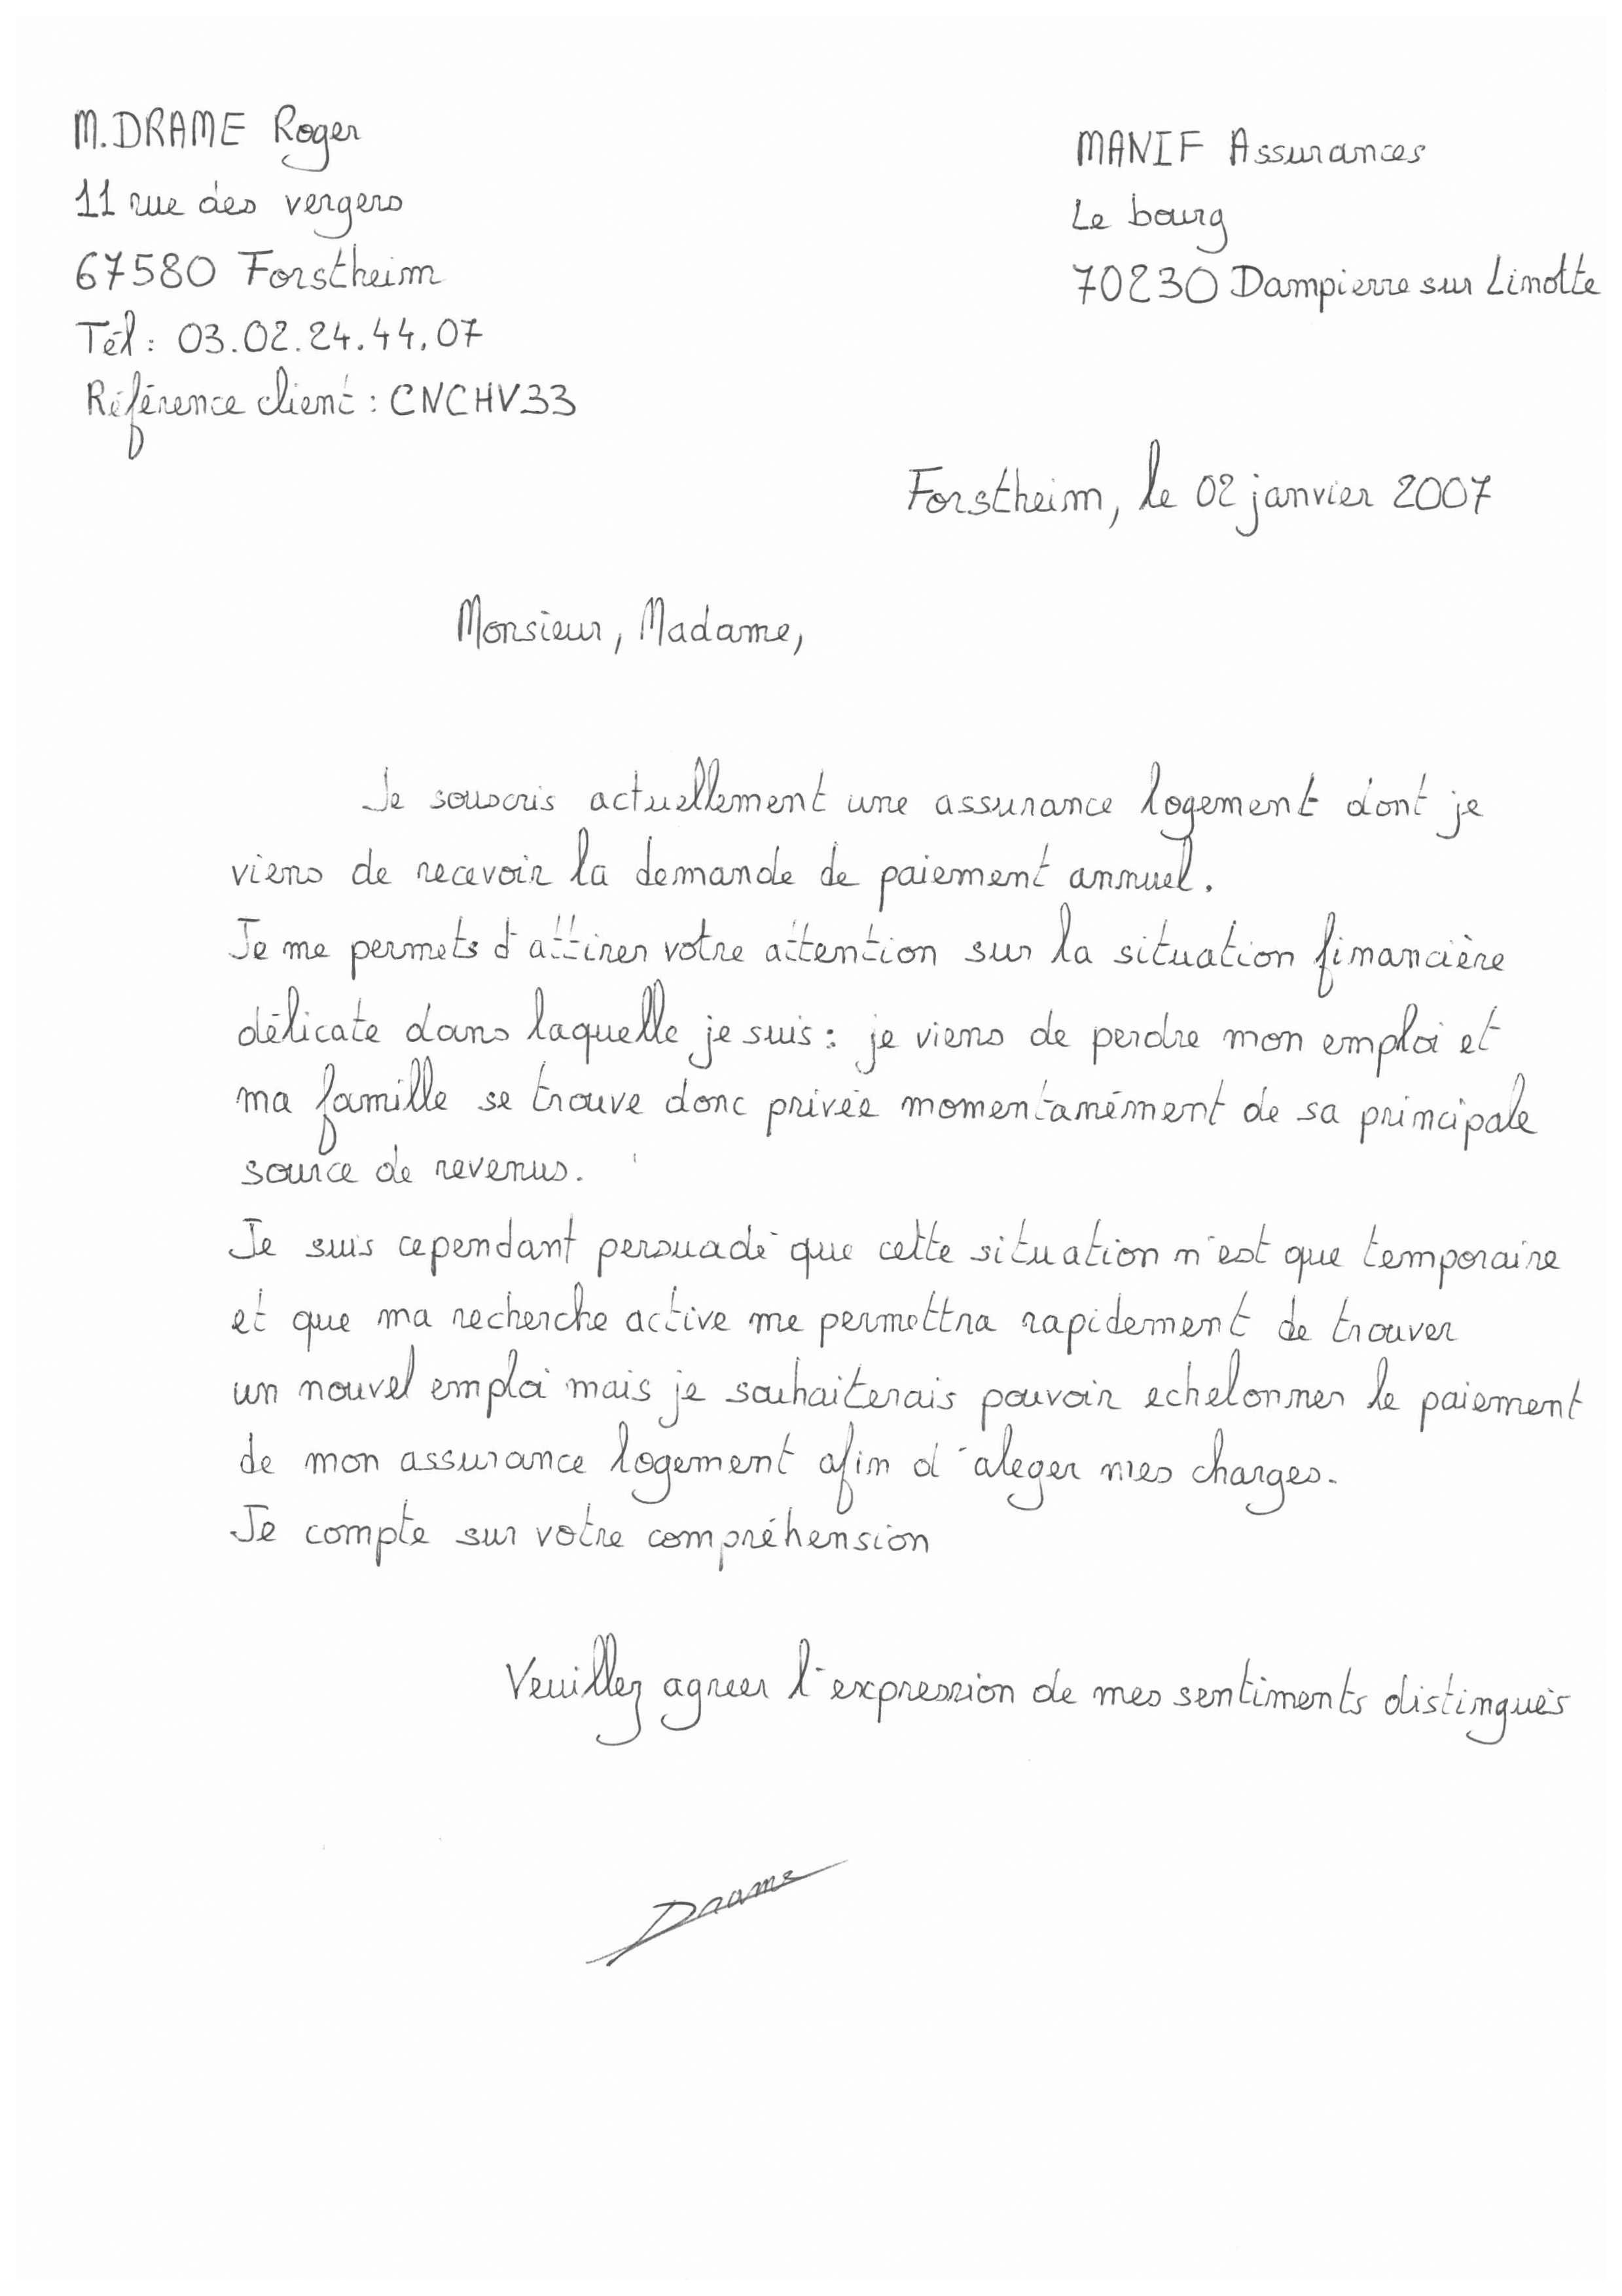 M. DRAME Roger
11 rue des vergers
67580 Forstheim
Tél : 03.02.24.44.07
Référence client : CNCHV33
MANIF Assurances
Le bourg
70230 Dampierre sur Linotte
Forstheim, le 02 janvier 2007
Monsieur, Madame,
Je souscris actuellement une assurance logement dont je
viens de recevoir la demande de paiement annuel.
Je me permets d'attirer votre attention sur la situation financière
délicate dans laquelle je suis : je viens de perdre mon emploi et
ma famille se trouve donc privée momentanément de sa principale
source de revenus.
Je suis cependant persuadé que cette situation n'est que temporaire
et que ma recherche active me permettra rapidement de trouver
un nouvel emploi mais je souhaiterais pouvoir echelonner le paiement
de mon assurance logement afin d'aleger mes charges.
Je compte sur votre compréhension
Veuillez agreer l'expression de mes sentiments distingués
Drame